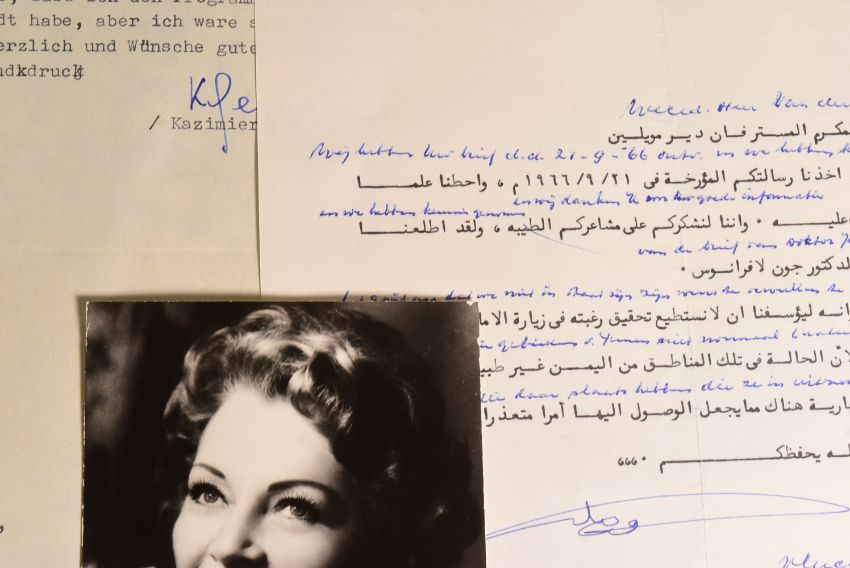 dt habe, aber ich ware s
erzlich und Wünsche gute
/ Kazimier
Weled. Heer Van der
المكرم المستر فان دير مويلين
Wij hebben Uw brief d.d. 21-9-'66 ontv. en we hebben
اخذنا رسالتكم المؤرخة فى ٢١/٩/١٩٦٦م ، واحطنا علمـا
en wij danken U voor Uw goede informatie
en we hebben kennis genomen
عليـه ٠ واننا لنشكركم على مشاعركم الطيبه ، ولقد اطلعنـا
van de brief van Doktor
الدكتور جون لافرانوس ٠
وانه ليؤسفنا ان لانستطيع تحقيق رغبته فى زيارة الاما
gebieden v. Yemen niet normaal
لأن الحالة فى تلك المناطق من اليمن غير طبي
daar plaats hebben die ze in
بارية هناك ممايجعل الوصول اليها أمرا متعذرا
لـه يحفظكـم ٠٠٠